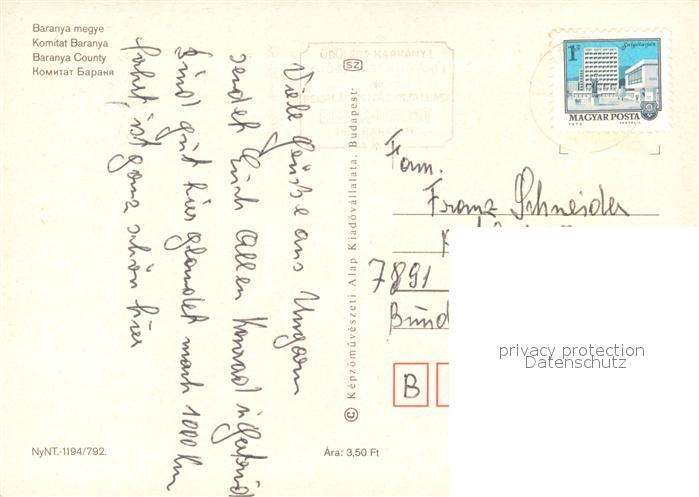 Baranya megye
Komitat Baranya
Baranya County
Комитат Бараня
Viele Grüße aus Ungarn
sendet Euch Allen Konrad u Gertrud
Sind gut hier gelandet nach 1000 km
Fahrt, ist ganz schön hier
ÜDÜLJÖN HARKÁNYI
SZ
© Képzőművészeti Alap Kiadóvállalata, Budapest
1Ft
Salgótarján
MAGYAR POSTA
Fam.
Franz Schneider
7891
Bund
B
privacy protection
Datenschutz
NyNT.-1194/792.
Ára: 3,50 Ft